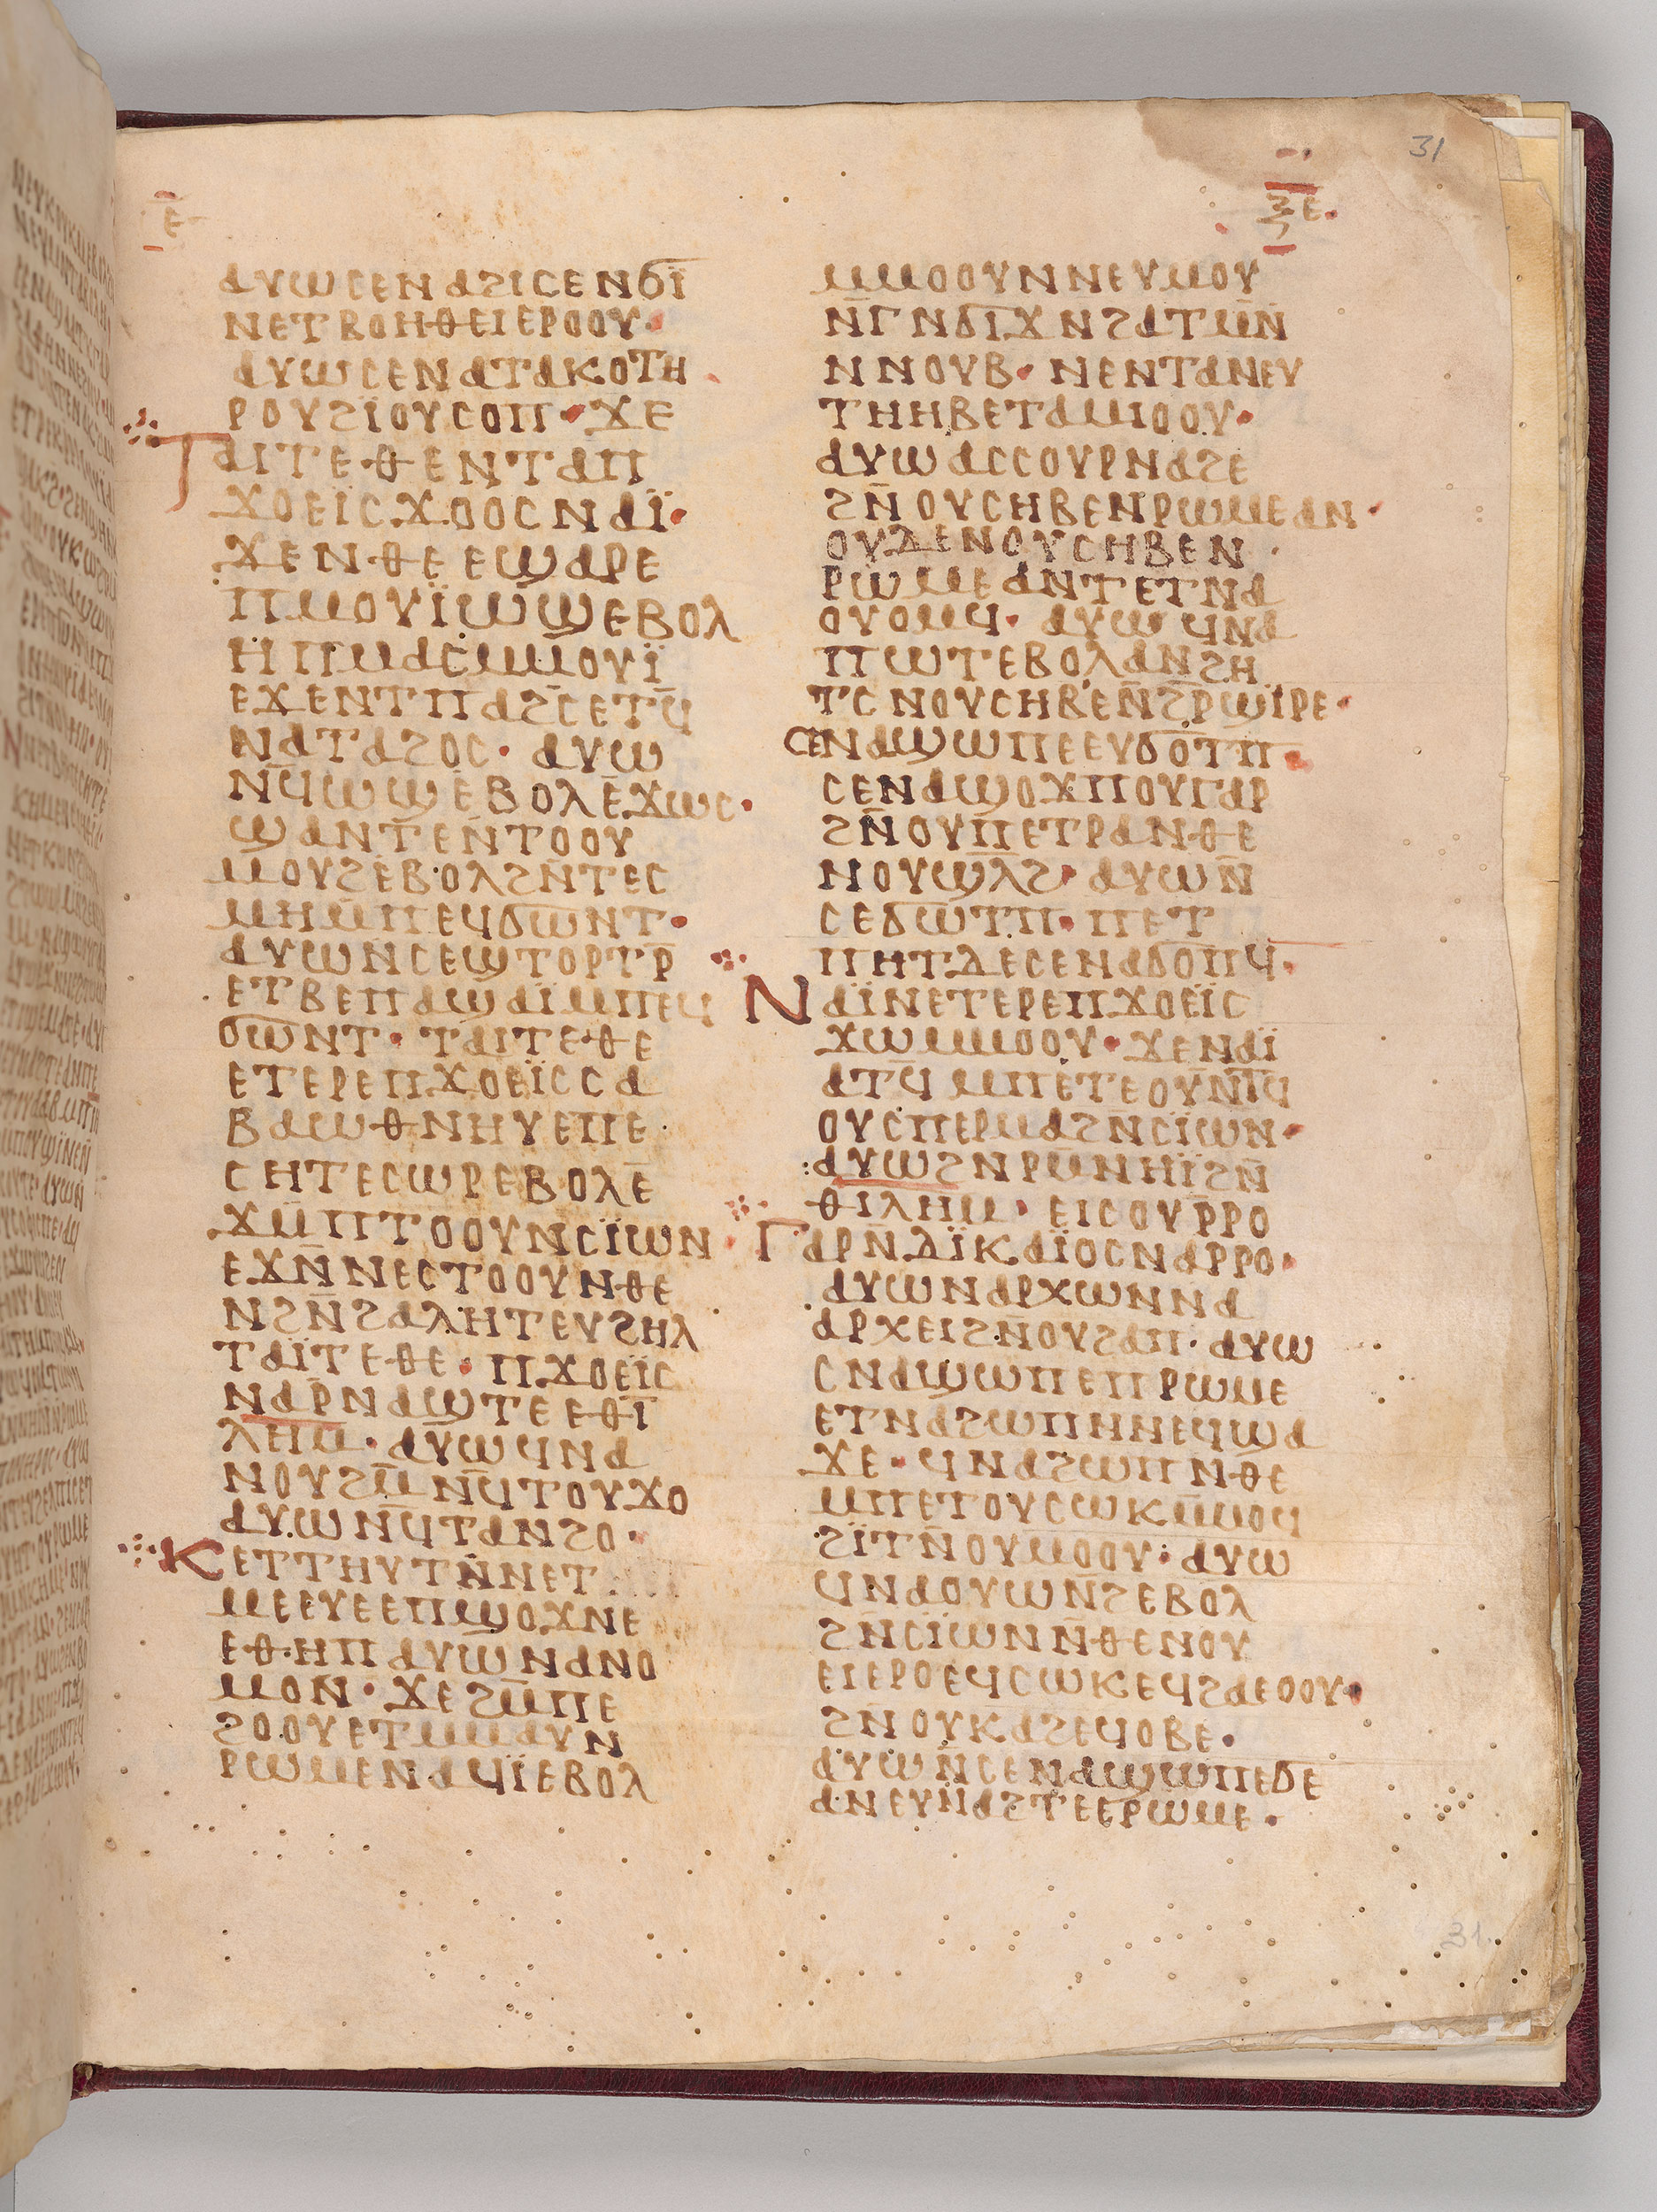 31
ⲝⲉ
ⲁⲩⲱⲥⲉⲛⲁϩⲓⲥⲉⲛϭⲓ
ⲛⲉⲧⲃⲟⲏⲑⲉⲓⲉⲣⲟⲟⲩ·
ⲁⲩⲱⲥⲉⲛⲁⲧⲁⲕⲟⲧⲏ
ⲣⲟⲩϩⲓⲟⲩⲥⲟⲡ· ϫⲉ
ⲧⲁⲓⲧⲉⲑⲉⲛⲧⲁⲡ
ϫⲟⲉⲓⲥϫⲟⲟⲥⲛⲁⲓ̈·
ϫⲉⲛⲑⲉⲉϣⲁⲣⲉ
ⲡⲙⲟⲩⲓ̈ⲱϣⲉⲃⲟⲗ
ⲏⲡⲙⲁⲥⲙⲙⲟⲩⲓ̈
ⲉϫⲉⲛⲧⲡⲁϩⲥⲉⲧϥ̄
ⲛⲁⲧⲁϩⲟⲥ· ⲁⲩⲱ
ⲛ̄ϥⲱϣⲉⲃⲟⲗⲉϫⲱⲥ·
ϣⲁⲛⲧⲉⲛ̄ⲧⲟⲟⲩ
ⲙⲟⲩϩⲉⲃⲟⲗϩⲛ̄ⲧⲉⲥ
ⲙⲏⲙ̄ⲡⲉϥϭⲱⲛⲧ·
ⲁⲩⲱⲛⲥⲉϣⲧⲟⲣⲧⲣ̄
ⲉⲧⲃⲉⲡⲁϣⲁⲓ̈ⲙⲡⲉϥ
ϭⲱⲛⲧ· ⲧⲁⲓⲧⲉⲑⲉ
ⲉⲧⲉⲣⲉⲡϫⲟⲉⲓ̈ⲥⲥⲁ
ⲃⲁⲱⲑⲛⲏⲩⲉⲡⲉ
ⲥⲏⲧⲉⲥⲱⲣⲉⲃⲟⲗⲉ̄
ϫⲙ̄ⲡⲧⲟⲟⲩⲛⲥⲓ̈ⲱⲛ
ⲉϫⲛ̄ⲛⲉⲥⲧⲟⲟⲩⲛⲑⲉ
ⲛϩⲛ̄ϩⲁⲗⲏⲧⲉⲩϩⲏⲗ
ⲧⲁⲓ̈ⲧⲉⲑⲉ· ⲡϫⲟⲉⲓ̈ⲥ
ⲛⲁⲣ̄ⲛⲁϣⲧⲉⲉⲑⲓ̄
ⲗⲏⲙ· ⲁⲩⲱϥⲛⲁ
ⲛⲟⲩϩⲙ̄ⲛ̄ϥⲧⲟⲩϫⲟ
ⲁⲩⲱⲛ̄ϥⲧⲁⲛϩⲟ·
ⲕⲉⲧⲧⲏⲩⲧⲛ̄ⲛⲉⲧ
ⲙⲉⲉⲩⲉⲉⲡϣⲟϫⲛⲉ
ⲉⲑⲏⲡⲁⲩⲱⲛⲁⲛⲟ
ⲙⲟⲛ· ϫⲉϩⲙ̄ⲡⲉ
ϩⲟⲟⲩⲉⲧⲙⲙⲁⲩⲛ
ⲣⲱⲙⲉⲛⲁϥⲓ̈ⲉⲃⲟⲗ
ⲙⲙⲟⲟⲩⲛⲛⲉⲩⲙⲟⲩ
ⲛ̄ⲅⲛϭⲓϫⲛϩⲁⲧⲙ̄ⲛ̄
ⲛⲛⲟⲩⲃ· ⲛⲉⲛⲧⲁⲛⲉⲩ
ⲧⲏⲏⲃⲉⲧⲁⲙⲓⲟⲟⲩ·
ⲁⲩⲱⲁⲥⲥⲟⲩⲣⲛⲁϩⲉ
ϩⲛ̄ⲟⲩⲥⲏⲃⲉⲛⲣⲱⲙⲉⲁⲛ·
ⲟⲩⲇⲉⲛⲟⲩⲥⲏⲃⲉⲛ
ⲣⲱⲙⲉⲁⲛⲧⲉⲧⲛⲁ
ⲟⲩⲟⲙϥ· ⲁⲩⲱϥⲛⲁ
ⲡⲱⲧⲉⲃⲟⲗⲁⲛϩⲏ
ⲧⲥⲛⲟⲩⲥⲏⲃⲉⲛ̄ϩⲣϣⲓⲣⲉ·
ⲥⲉⲛⲁϣⲱⲡⲉⲉⲩϭⲟⲧⲡ
ⲥⲉⲛⲁϣⲟϫⲡⲟⲩⲅⲁⲣ
ϩⲛ̄ⲟⲩⲡⲉⲧⲣⲁⲛⲑⲉ
ⲛⲟⲩϣⲗϩ· ⲁⲩⲱⲛ̄
ⲥⲉϭⲱⲧⲡ· ⲡⲉⲧ
ⲡⲏⲧⲇⲉⲥⲉⲛⲁϭⲟⲡϥ·
ⲛⲁⲓ̈ⲛⲉⲧⲉⲣⲉⲡϫⲟⲉⲓ̈ⲥ
ϫⲱⲙⲙⲟⲟⲩ· ϫⲉⲛⲁⲓ̈
ⲁⲧϥ ⲙⲡⲉⲧⲉⲟⲩⲛ̄ⲧϥ
ⲟⲩⲥⲡⲉⲣⲙⲁϩⲛⲥⲓ̈ⲱⲛ·
ⲁⲩⲱϩⲛⲣⲙⲛⲏⲓ̈ϩⲛ̄
ⲑⲓⲗⲏⲙ· ⲉⲓⲥⲟⲩⲣ̄ⲣⲟ
ⲅⲁⲣⲛ̄ⲇⲓ̈ⲕⲁⲓ̈ⲟⲥⲛⲁⲣⲣⲟ·
ⲁⲩⲱⲛⲁⲣⲭⲱⲛⲛⲁ
ⲁⲣⲭⲉⲓϩⲛ̄ⲟⲩϩⲁⲡ· ⲁⲩⲱ
ⲥⲛⲁϣⲱⲡⲉⲡⲣⲱⲙⲉ
ⲉⲧⲛⲁϩⲱⲡⲛⲛⲉϥϣⲁ
ϫⲉ· ϥⲛⲁϩⲱⲡⲛⲑⲉ
ⲙⲡⲉⲧⲟⲩⲥⲱⲕⲙ̄ⲙⲟϥ
ϩⲓ̈ⲧⲛ̄ⲟⲩⲙⲟⲟⲩ: ⲁⲩⲱ
ϥⲛⲁⲟⲩⲱⲛ̄ϩⲉⲃⲟⲗ
ϩⲛ̄ⲥⲓ̈ⲱⲛⲛ̄ⲑⲉⲛⲟⲩ
ⲉⲓⲉⲣⲟⲉϥⲥⲱⲕⲉϥϩⲁⲉⲟⲟⲩ·
ϩⲛ̄ⲟⲩⲕⲁϩⲉϥⲟⲃⲉ·
ⲁⲩⲱⲛ̄ⲥⲉⲛⲁϣⲱⲡⲉϭⲉ
ⲁⲛⲉⲩⲛⲁϩⲧⲉⲉⲣⲱⲙⲉ·
31